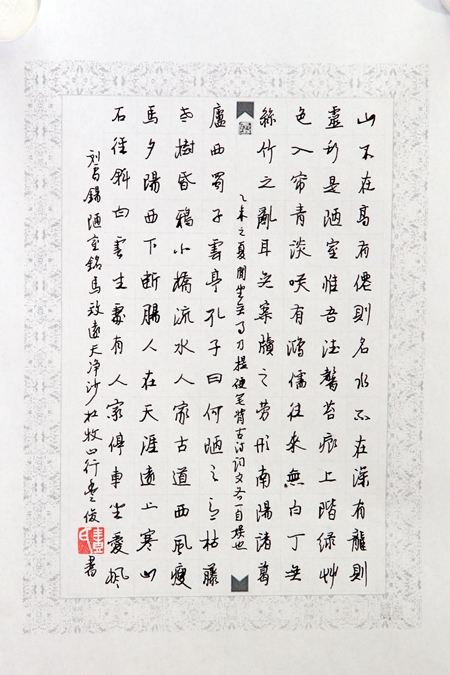 山不在高有僊則名水不在深有龍則
靈斯是陋室惟吾德馨苔痕上階綠艸
色入帘青淡咲有鴻儒往来無白丁无
絲竹之亂耳无案牘之勞形南陽諸葛
乙未之夏閒坐無事乃提硬笔背古诗词文各一自娱也
廬西蜀子雲亭孔子曰何陋之有枯藤
老樹昏鴉小橋流水人家古道西風瘦
馬夕陽西下斷腸人在天涯遠上寒山
石徑斜白雲生處有人家停車坐愛楓
刘禹錫陋室銘馬致遠天净沙杜牧山行俊書